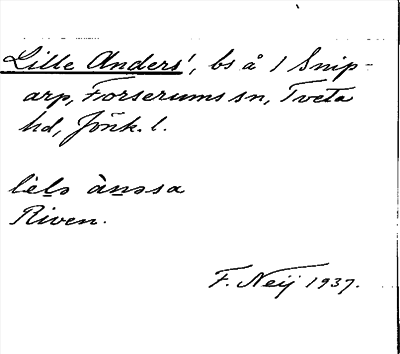 Lille Anders', bs å 1 Snip-
arp, Forserums sn, Tveta
hd, Jönk. l.
lèlɘ ànɘsa
Riven.
F. Neij 1937.